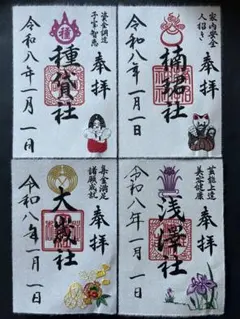 資金調達
子宝智恵
奉拝
種
種貸社
令和八年一月一日
家内安全
人招き
奉拝
楠珺社
令和八年一月一日
集金満足
諸願成就
奉拝
大歳社
令和八年一月一日
芸能上達
美容健康
奉拝
浅澤社
令和八年一月一日